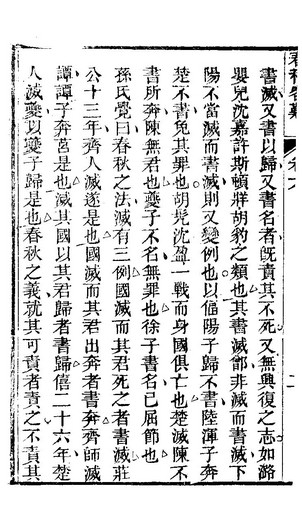 書滅又書以歸又書名者既責其不死又無興復之志如潞
嬰兒沈嘉許斯頓牂胡豹之類也其書滅邿非滅而書滅下
陽不當滅而書滅則又變例也以偪陽子歸不書陸渾子奔
楚不書免其罪也胡髠沈盈一戰而身國俱亡也楚滅陳不
書所奔陳無君也夔子不名無罪也徐子書名已屈節也
孫氏覺曰春秋之法滅有三例國滅而其君死之者書滅莊
公十三年齊人滅遂是也國滅而其君出奔者書奔齊師滅
譚譚子奔莒是也滅其國以其君歸者書歸僖二十六年楚
人滅夔以夔子歸是也春秋之義就其可責者責之不責其